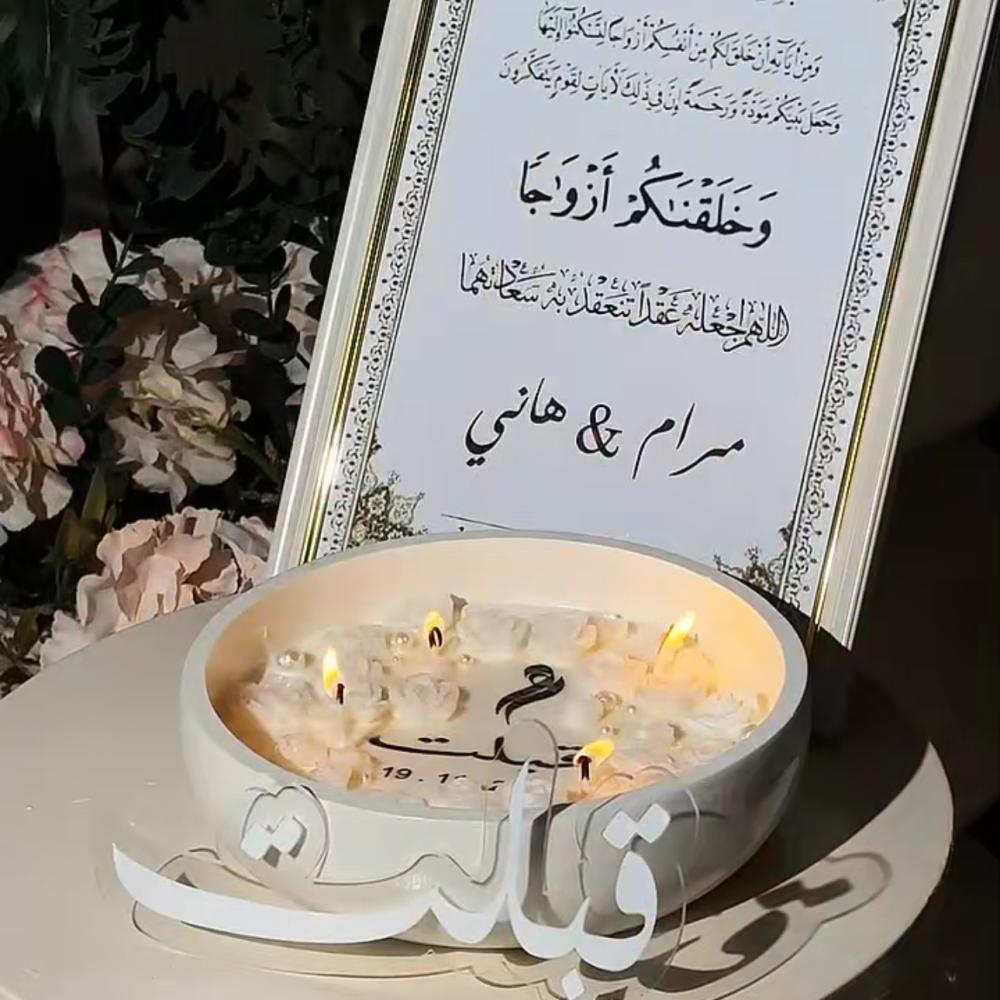 وَمِنْ آيَاتِهِ أَنْ خَلَقَ لَكُمْ مِنْ أَنْفُسِكُمْ أَزْوَاجًا لِتَسْكُنُوا إِلَيْهَا
وَجَعَلَ بَيْنَكُمْ مَوَدَّةً وَرَحْمَةً إِنَّ فِي ذَلِكَ لَآيَاتٍ لِقَوْمٍ يَتَفَكَّرُونَ
وَخَلَقْنَٰكُمْ أَزْوَٰجًا
اللهم اجعله عقداً تنعقد به سعادتهما
مرام & هاني
قبلت
19 . 1
قبلت